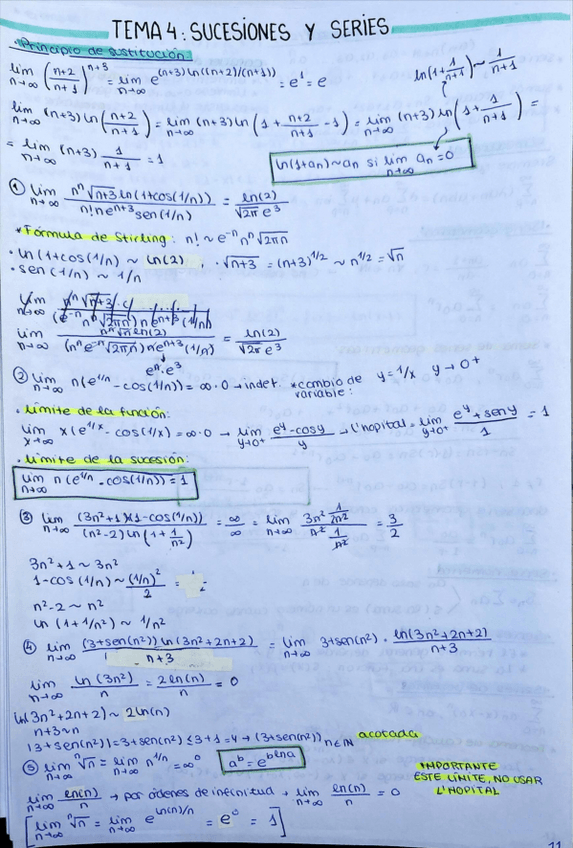 TEMA 4: SUCESIONES Y SERIES
• Principio de sustitución:
lim n→∞ ((n+2)/(n+1))^(n+3) = lim n→∞ e^((n+3)ln((n+2)/(n+1))) = e^1 = e
ln(1+1/(n+1)) ~ 1/(n+1)
lim n→∞ (n+3) ln((n+2)/(n+1)) = lim n→∞ (n+3) ln(1 + (n+2)/(n+1) - 1) = lim n→∞ (n+3) ln(1 + 1/(n+1)) =
= lim n→∞ (n+3) 1/(n+1) = 1
ln(1+an) ~ an si lim n→∞ an = 0
① lim n→∞ (n^n √(n+3) ln(1+cos(1/n)))/(n! n e^(n+3) sen(1/n)) = ln(2)/(√(2π) e^3)
* Fórmula de Stirling: n! ~ e^(-n) n^n √(2πn)
• ln(1+cos(1/n)) ~ ln(2) . • √(n+3) = (n+3)^(1/2) ~ n^(1/2) = √n
• sen(1/n) ~ 1/n
lim n→∞ (n^n √n ln(2))/((n^n e^(-n) √(2πn)) n e^(n+3) (1/n)) = ln(2)/(√(2π) e^3)
e^n · e^3
② lim n→∞ n(e^(1/n) - cos(1/n)) = ∞·0 → indet. * cambio de variable: y = 1/x y → 0+
• límite de la función:
lim x→∞ x(e^(1/x) - cos(1/x)) = ∞·0 → lim y→0+ (e^y - cos y)/y → L'hopital = lim y→0+ (e^y + sen y)/1 = 1
• límite de la sucesión:
lim n→∞ n(e^(1/n) - cos(1/n)) = 1
③ lim n→∞ ((3n²+1)(1-cos(1/n)))/((n²-2) ln(1+1/n²)) = ∞/∞ = lim n→∞ (3n² 1/(2n²))/(n² 1/n²) = 3/2
3n²+1 ~ 3n²
1-cos(1/n) ~ (1/n)²/2 =
n²-2 ~ n²
ln(1+1/n²) ~ 1/n²
④ lim n→∞ ((3+sen(n²)) ln(3n²+2n+2))/(n+3) = lim n→∞ 3+sen(n²) · ln(3n²+2n+2)/(n+3)
lim n→∞ ln(3n²)/n = 2ln(n)/n = 0
ln(3n²+2n+2) ~ 2ln(n)
n+3 ~ n
|3+sen(n²)| = 3+sen(n²) ≤ 3+1 = 4 → (3+sen(n²)) n∈ℕ acotada
⑤ lim n→∞ ⁿ√n = lim n→∞ n^(1/n) = ∞^0
a^b = e^(b ln a)
IMPORTANTE
ESTE LÍMITE, NO USAR
L'HOPITAL
lim n→∞ ln(n)/n → por órdenes de infinitud → lim n→∞ ln(n)/n = 0
[lim n→∞ ⁿ√n = lim n→∞ e^(ln(n)/n) = e^0 = 1]
11